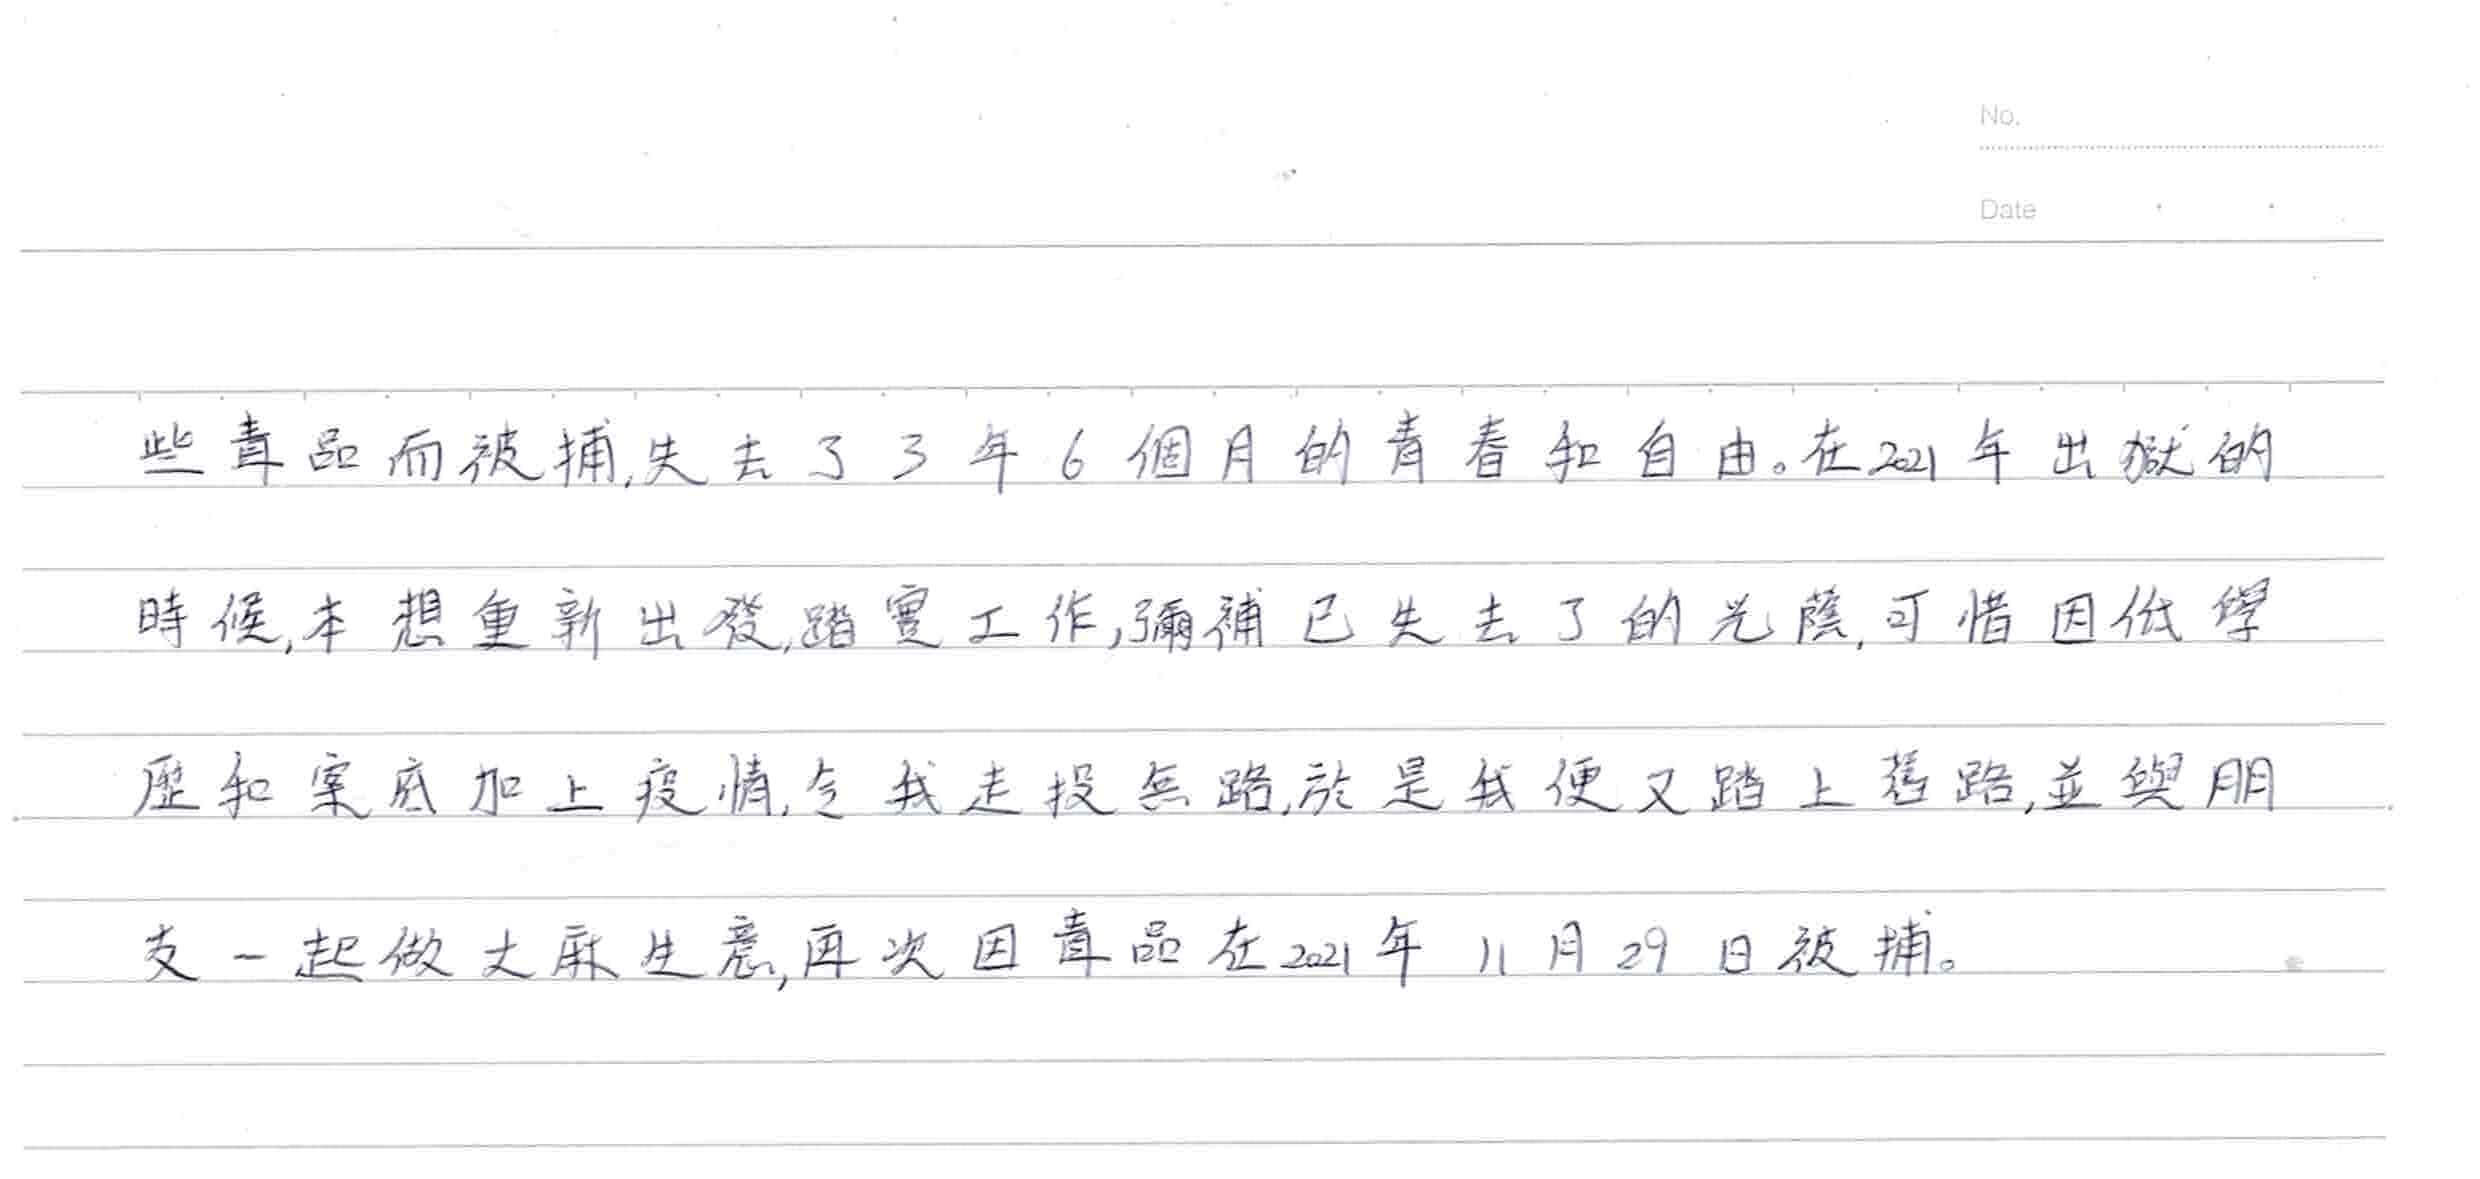 No.
Date
些毒品而被捕,失去了3年6個月的青春和自由。在2021年出獄的
時候,本想重新出發,踏實工作,彌補已失去了的光蔭,可惜因低學
歷和案底加上疫情,令我走投無路,於是我便又踏上舊路,並與朋
友一起做大麻生意,再次因毒品在2021年11月29日被捕。